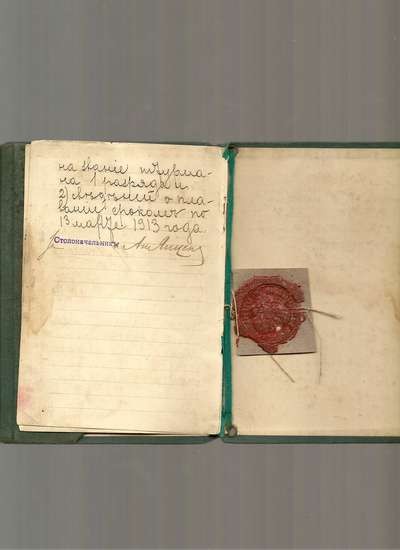 на званіе штурма-
на 1 разряда и
2) свѣдѣній о пла-
ваніи срокомъ по
13 марта 1913 года.
Столоначальникъ